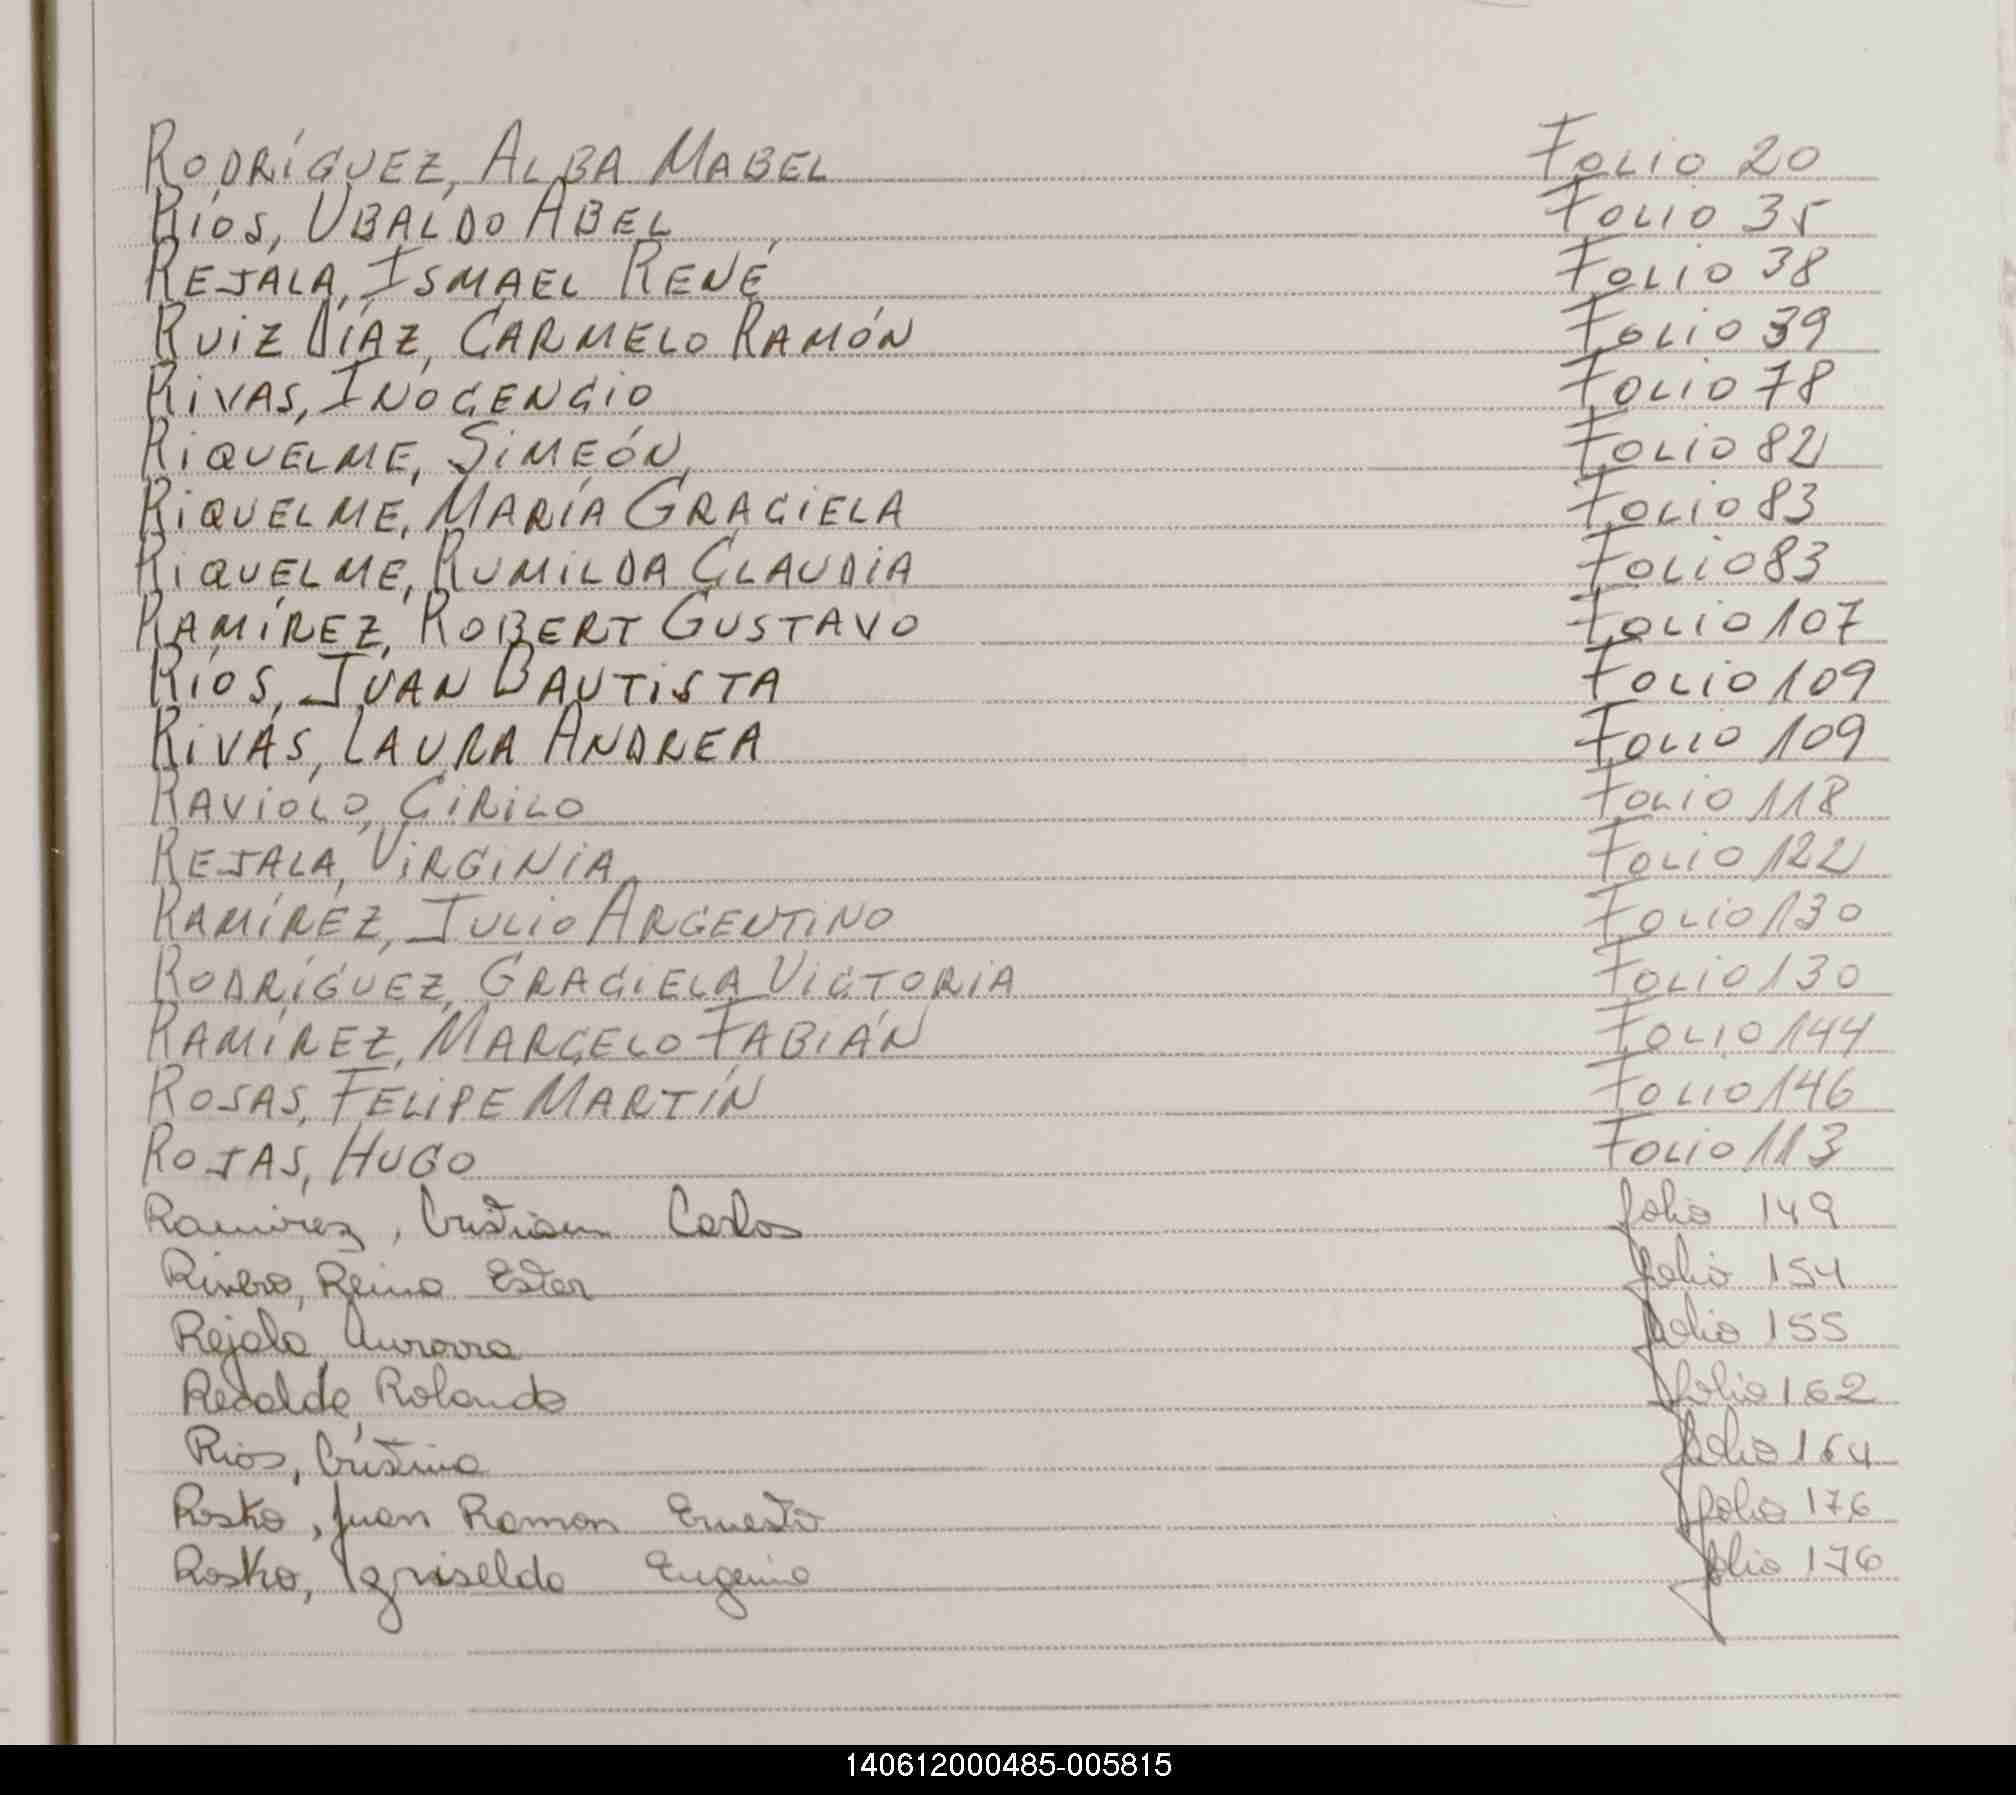 RODRÍGUEZ, ALBA MABEL FOLIO 20
RÍOS, UBALDO ABEL FOLIO 35
REJALA, ISMAEL RENÉ FOLIO 38
RUIZ DÍAZ, CARMELO RAMÓN FOLIO 39
RIVAS, INOCENCIO FOLIO 78
RIQUELME, SIMEÓN FOLIO 82
RIQUELME, MARÍA GRACIELA FOLIO 83
RIQUELME, RUMILDA CLAUDIA FOLIO 83
RAMÍREZ, ROBERT GUSTAVO FOLIO 107
RÍOS, JUAN BAUTISTA FOLIO 109
RIVAS, LAURA ANDREA FOLIO 109
RAVIOLO, CIRILO FOLIO 118
REJALA, VIRGINIA FOLIO 122
RAMÍREZ, JULIO ARGENTINO FOLIO 130
RODRÍGUEZ, GRACIELA VICTORIA FOLIO 130
RAMÍREZ, MARCELO FABIÁN FOLIO 144
ROSAS, FELIPE MARTÍN FOLIO 146
ROJAS, HUGO FOLIO 113
Ramirez, Cristian Carlos folio 149
Rivero, Reina Ester folio 154
Rejala, Aurora folio 155
Recalde, Rolando folio 162
Rios, Cristina folio 164
Rosko, Juan Ramon Ernesto folio 176
Rosko, Griselda Eugenia folio 176
140612000485-005815